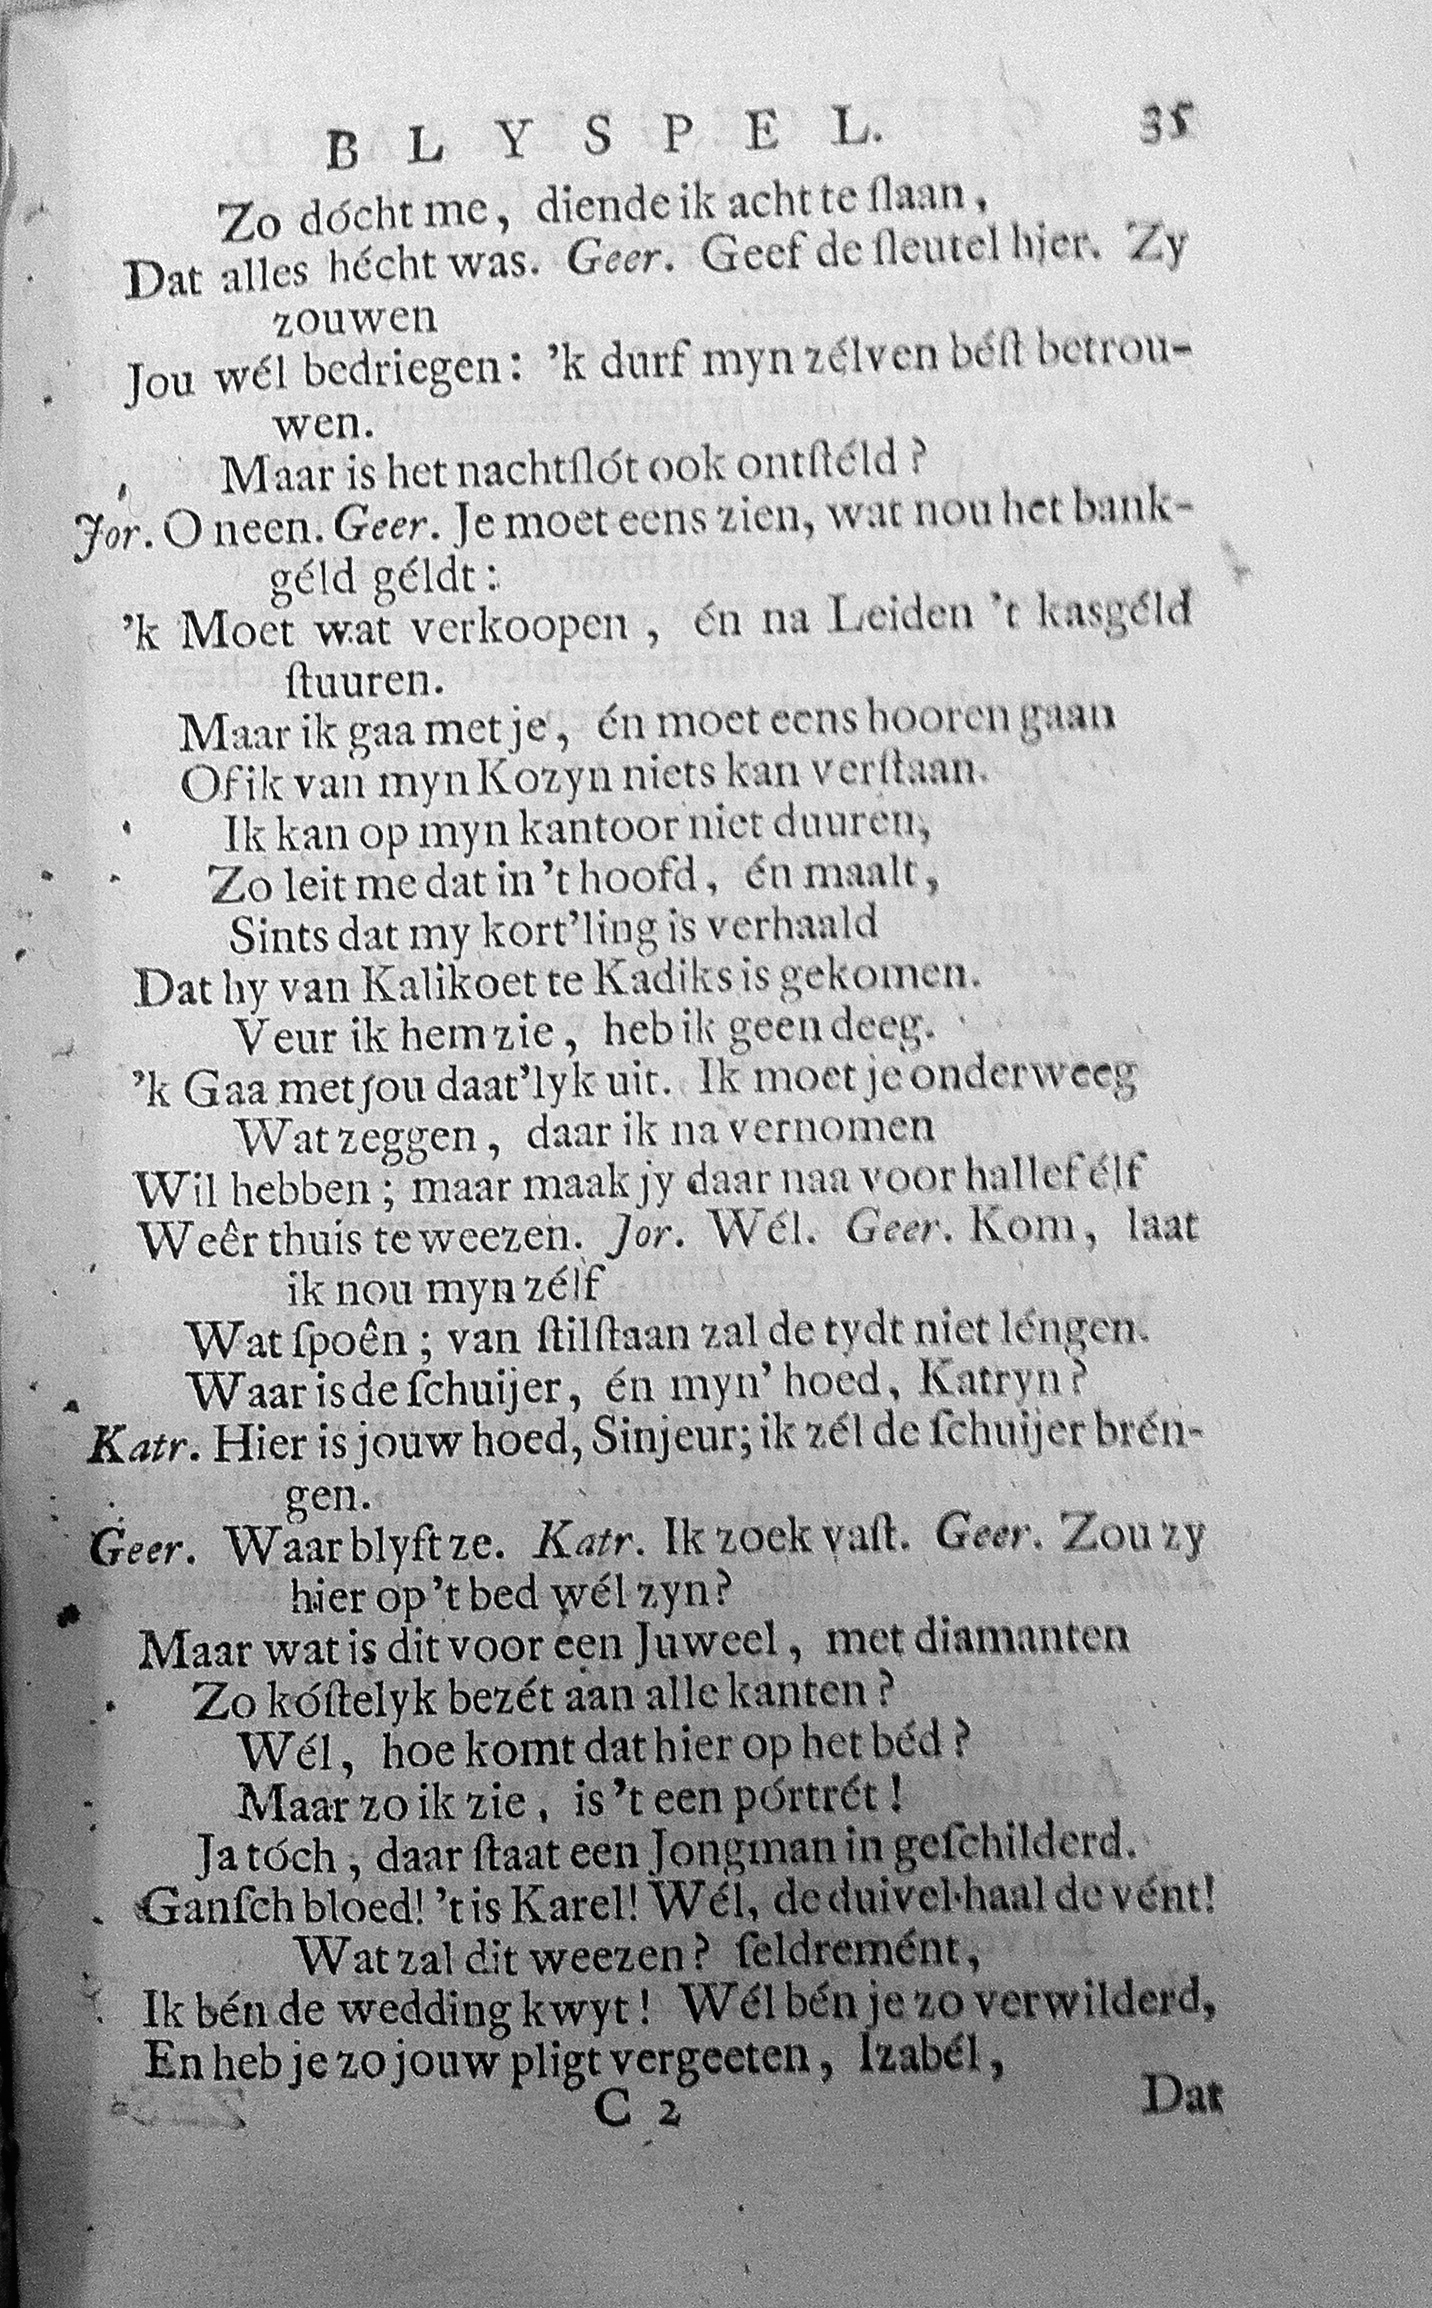 BLYSPEL. 35
Zo dócht me, diende ik acht te ſlaan,
Dat alles hécht was. Geer. Geef de ſleutel hier. Zy
zouwen
Jou wél bedriegen: ’k durf myn zélven béſt betrou-
wen.
Maar is het nachtſlót ook ontſtéld?
Jor. O neen. Geer. Je moet eens zien, wat nou het bank-
géld géldt:
’k Moet wat verkoopen, én na Leiden ’t kasgéld
ſtuuren.
Maar ik gaa met je, én moet eens hooren gaan
Of ik van myn Kozyn niets kan verſtaan.
Ik kan op myn kantoor niet duuren,
Zo leit me dat in ’t hoofd, én maalt,
Sints dat my kort’ling is verhaald
Dat hy van Kalikoet te Kadiks is gekomen.
Veur ik hem zie, heb ik geen deeg.
’k Gaa met jou daat’lyk uit. Ik moet je onderweeg
Wat zeggen, daar ik na vernomen
Wil hebben; maar maak jy daar naa voor hallef élf
Weêr thuis te weezen. Jor. Wél. Geer. Kom, laat
ik nou myn zélf
Wat ſpoên; van ſtilſtaan zal de tydt niet léngen.
Waar is de ſchuijer, én myn’ hoed, Katryn?
Katr. Hier is jouw hoed, Sinjeur; ik zél de ſchuijer brén-
gen.
Geer. Waar blyft ze. Katr. Ik zoek vaſt. Geer. Zou zy
hier op ’t bed wél zyn?
Maar wat is dit voor een Juweel, met diamanten
Zo kóſtelyk bezét aan alle kanten?
Wél, hoe komt dat hier op het béd?
Maar zo ik zie, is ’t een pórtrét!
Ja tóch, daar ſtaat een Jongman in geſchilderd.
Ganſch bloed! ’t is Karel! Wél, de duivel haal de vént!
Wat zal dit weezen? ſeldremént,
Ik bén de wedding kwyt! Wél bén je zo verwilderd,
En heb je zo jouw pligt vergeeten, Izabél,
C 2 Dat